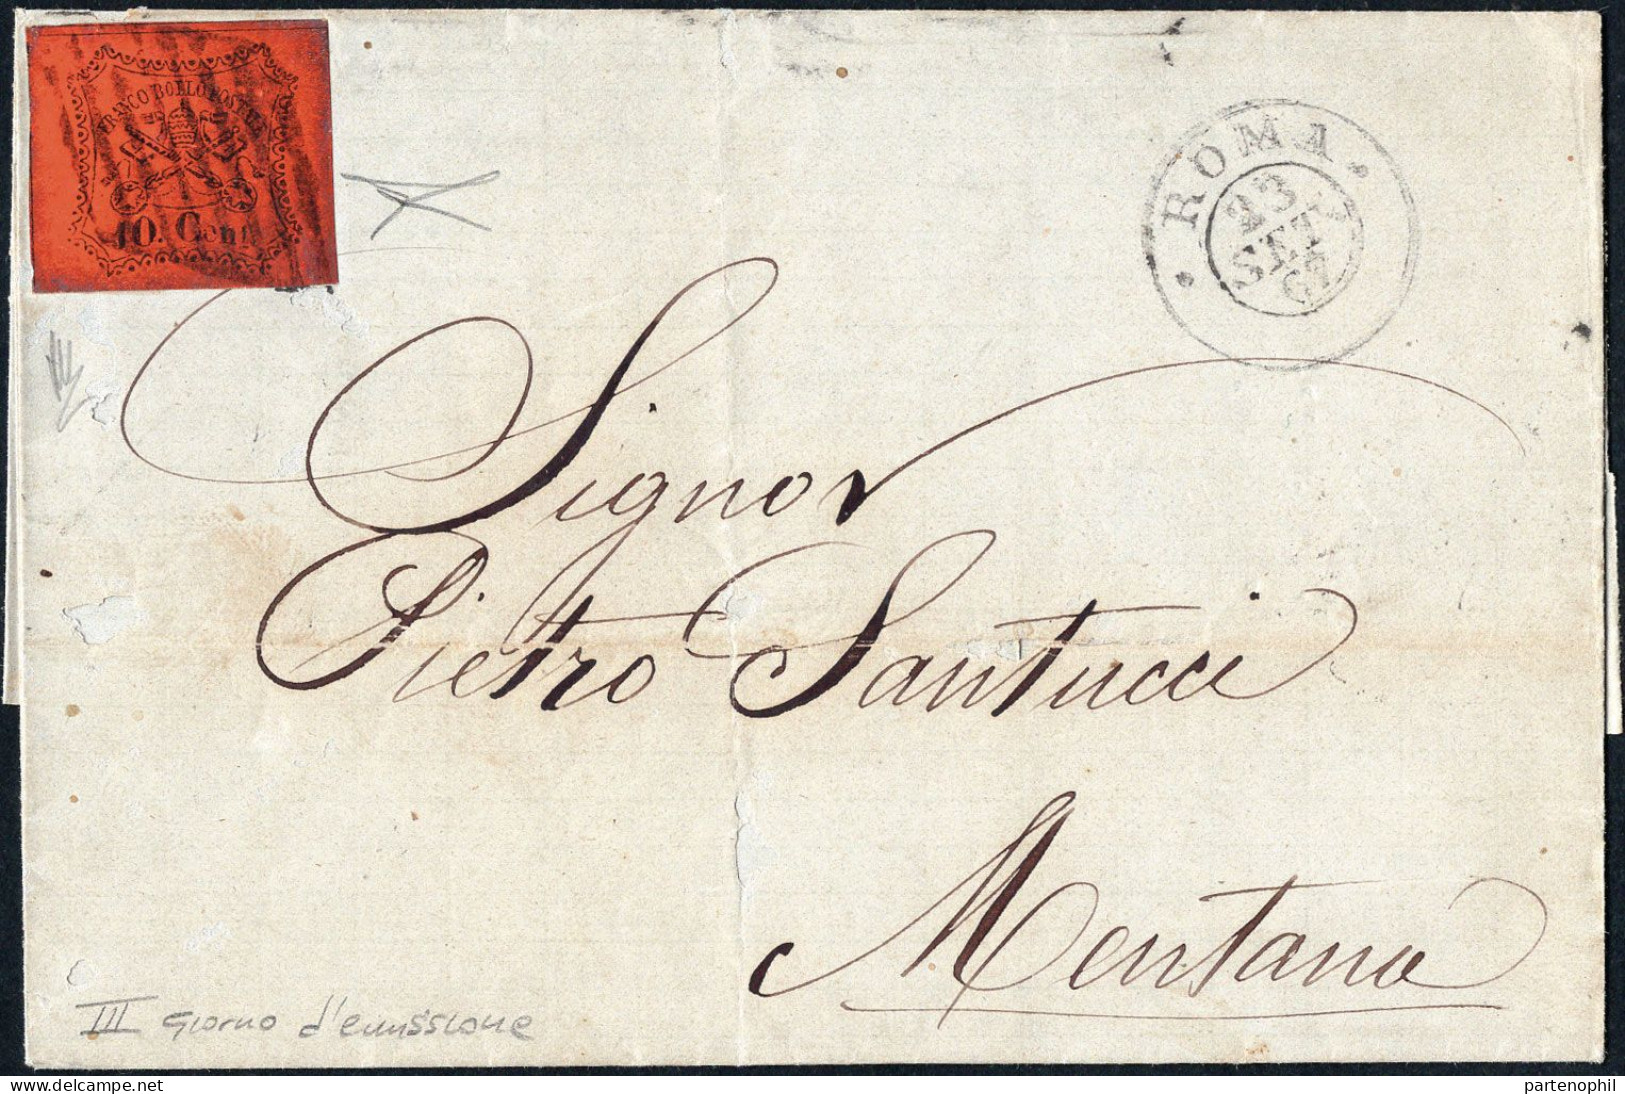 FRANCO BOLLO POSTALE
10. Cent
ROMA
23
SET
67
Signor
Pietro Santucci
Mentana
III giorno d'emissione
delcampe.net
partenophil